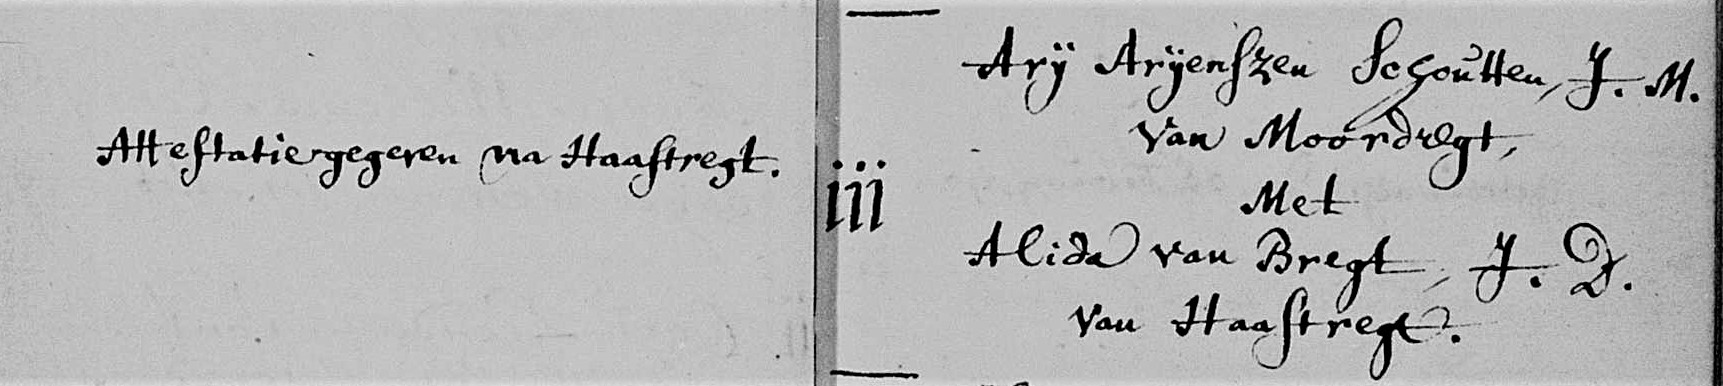 Attestatie gegeven na Haastregt.
iii
Arÿ Arÿenszen Schoutten, J. M.
van Moordregt,
Met
Alida van Bregt, J. D.
van Haastregt.